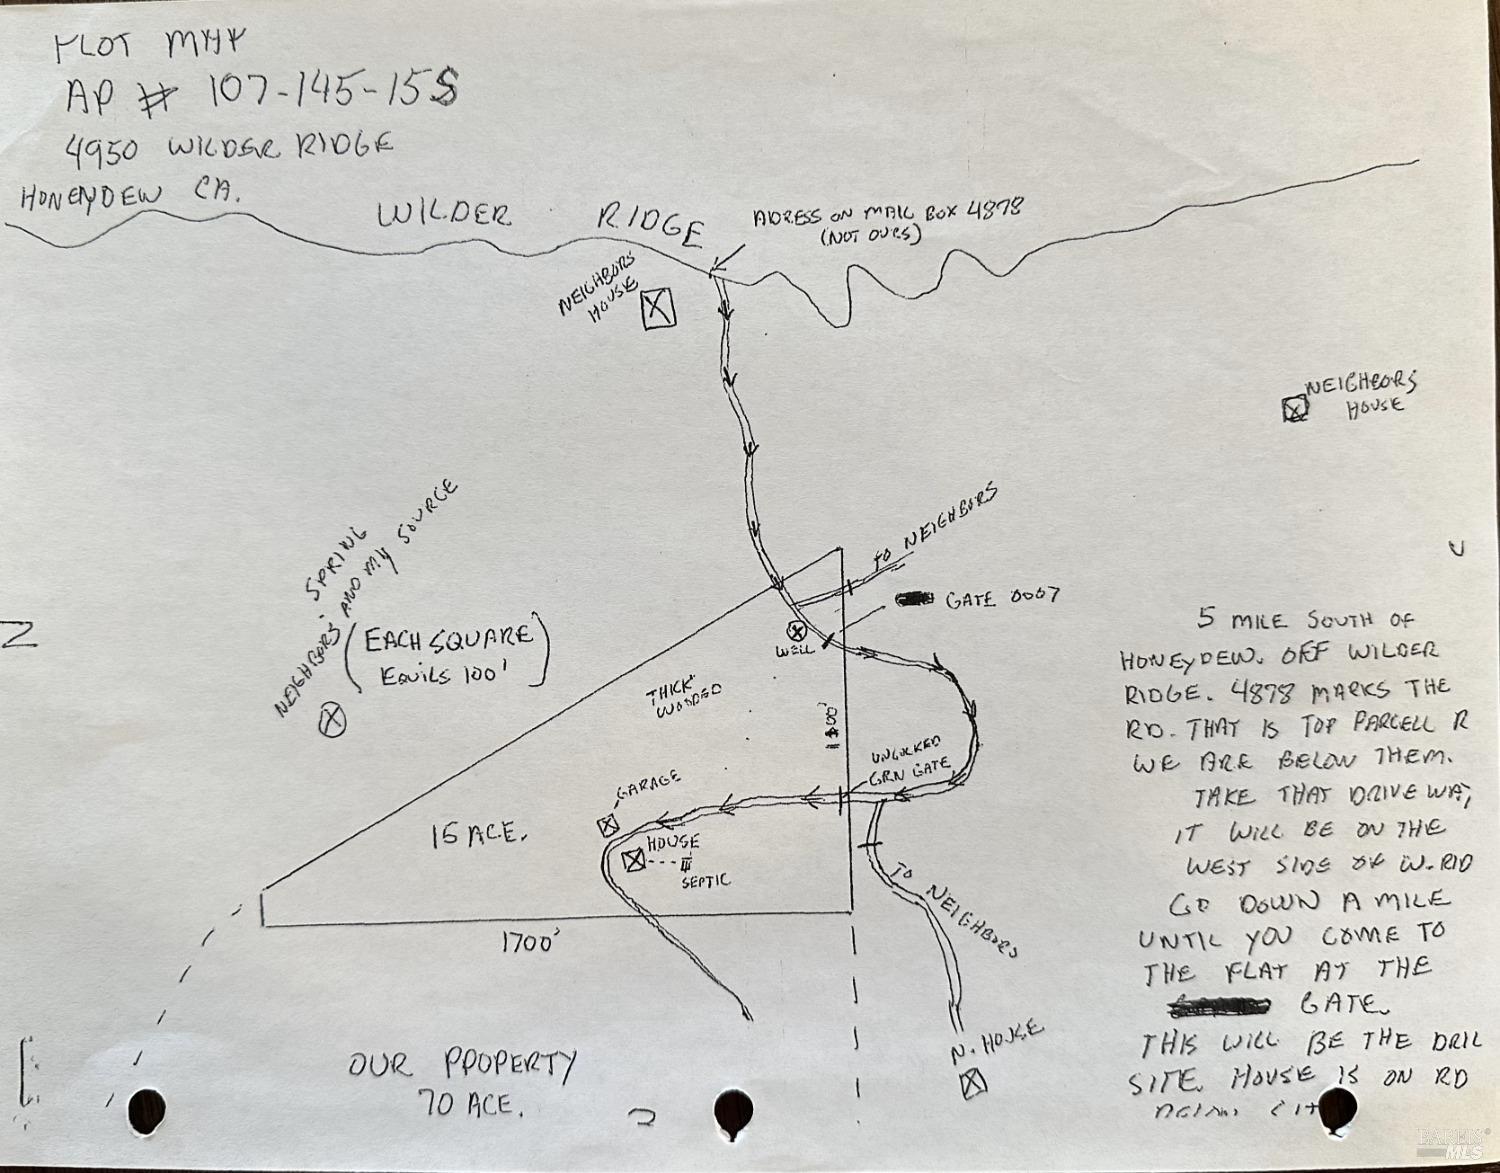 PLOT MAP
AP # 107-145-15S
4950 WILDER RIDGE
HONEYDEW CA.
WILDER RIDGE
ADRESS ON MAIL BOX 4878
(NOT OURS)
NEIGHBORS
HOUSE
NEIGHBORS
HOUSE
NEIGHBORS' SPRING
AND MY SOURCE
(EACH SQUARE
EQUILS 100')
TO NEIGHBORS
GATE 0007
WELL
THICK
WOODED
UNLOCKED
GRN GATE
GARAGE
15 ACE.
HOUSE
SEPTIC
1700'
TO NEIGHBORS
N. HOUSE
OUR PROPERTY
70 ACE.
5 MILE SOUTH OF
HONEYDEW. OFF WILDER
RIDGE. 4878 MARKS THE
RD. THAT IS TOP PARCELL R
WE ARE BELOW THEM.
TAKE THAT DRIVE WAY,
IT WILL BE ON THE
WEST SIDE OF W.RID
GO DOWN A MILE
UNTIL YOU COME TO
THE FLAT AT THE
GATE.
THIS WILL BE THE DRIL
SITE. HOUSE IS ON RD
BAREIS
MLS